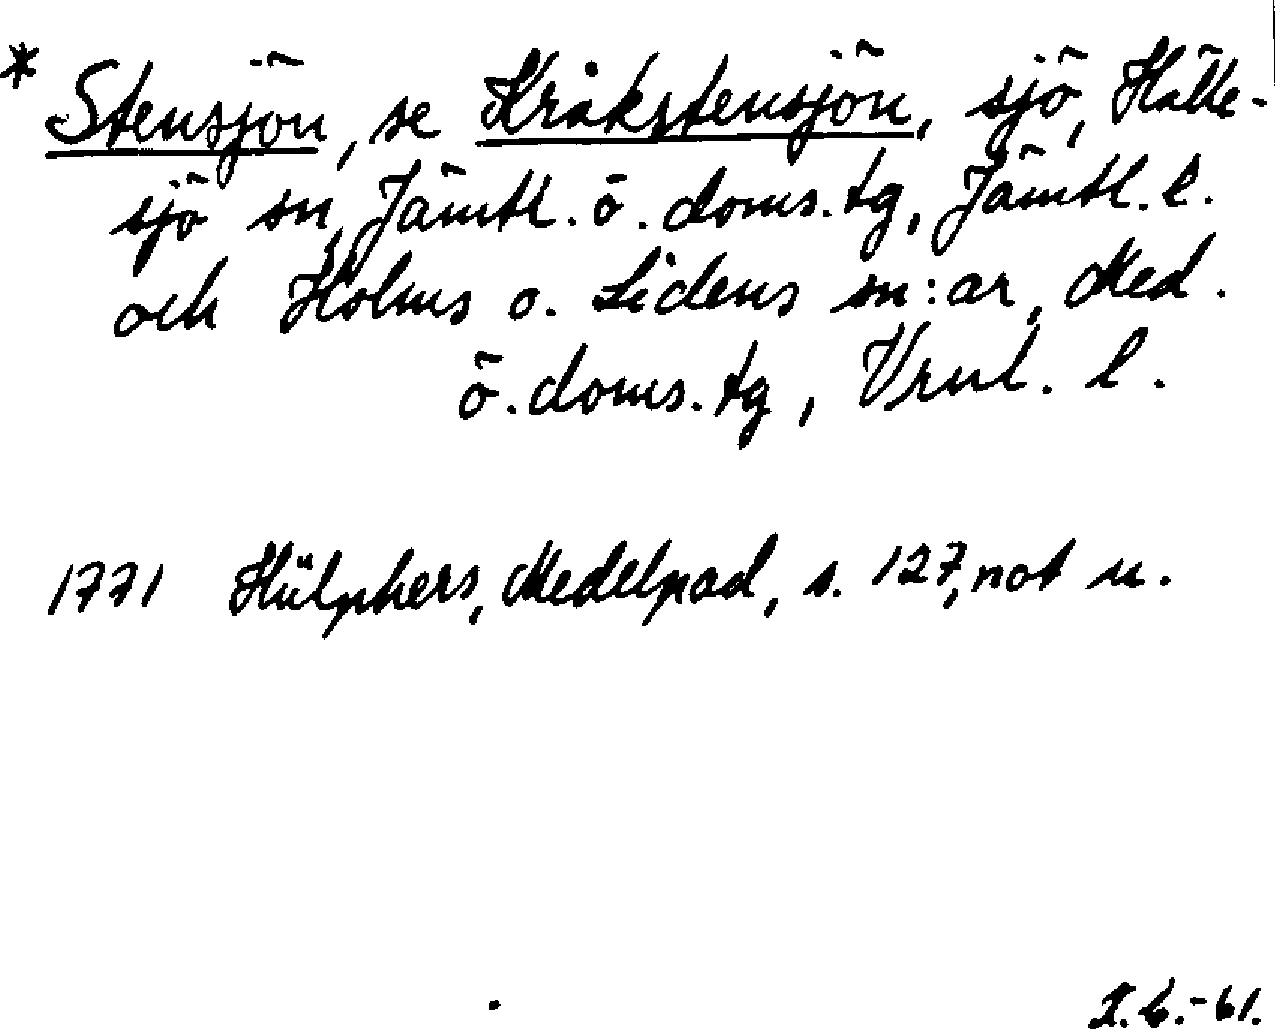 * Stensjön, se Kråkstensjön, sjö, Hälle-
sjö sn, Jämtl. ö. doms. tg, Jämtl. l.
och Holms o. Lidens sn:ar, Med.
ö. doms. tg, Vrnl. l.
1771 Hülphers, Medelpad, s. 127, not u.
2.6.-61.